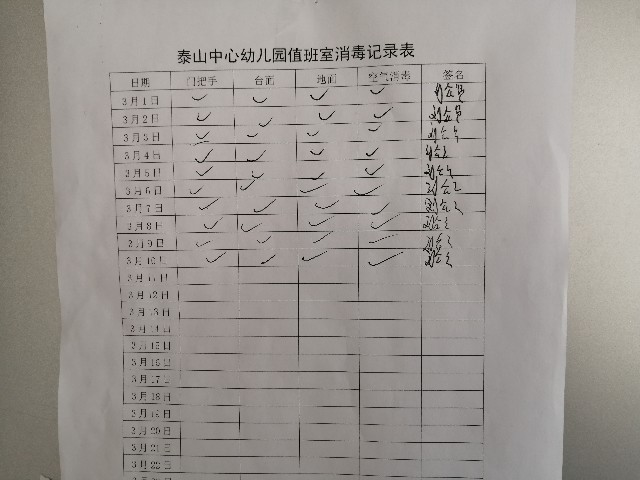 泰山中心幼儿园值班室消毒记录表
日期 门把手 台面 地面 空气消毒 签名
3月1日 ✓ ✓ ✓ ✓
3月2日 ✓ ✓ ✓ ✓
3月3日 ✓ ✓ ✓ ✓
3月4日 ✓ ✓ ✓ ✓
3月5日 ✓ ✓ ✓ ✓
3月6日 ✓ ✓ ✓ ✓
3月7日 ✓ ✓ ✓ ✓
3月8日 ✓ ✓ ✓ ✓
3月9日 ✓ ✓ ✓ ✓
3月10日 ✓ ✓ ✓ ✓
3月11日
3月12日
3月13日
3月14日
3月15日
3月16日
3月17日
3月18日
3月19日
3月20日
3月21日
3月22日